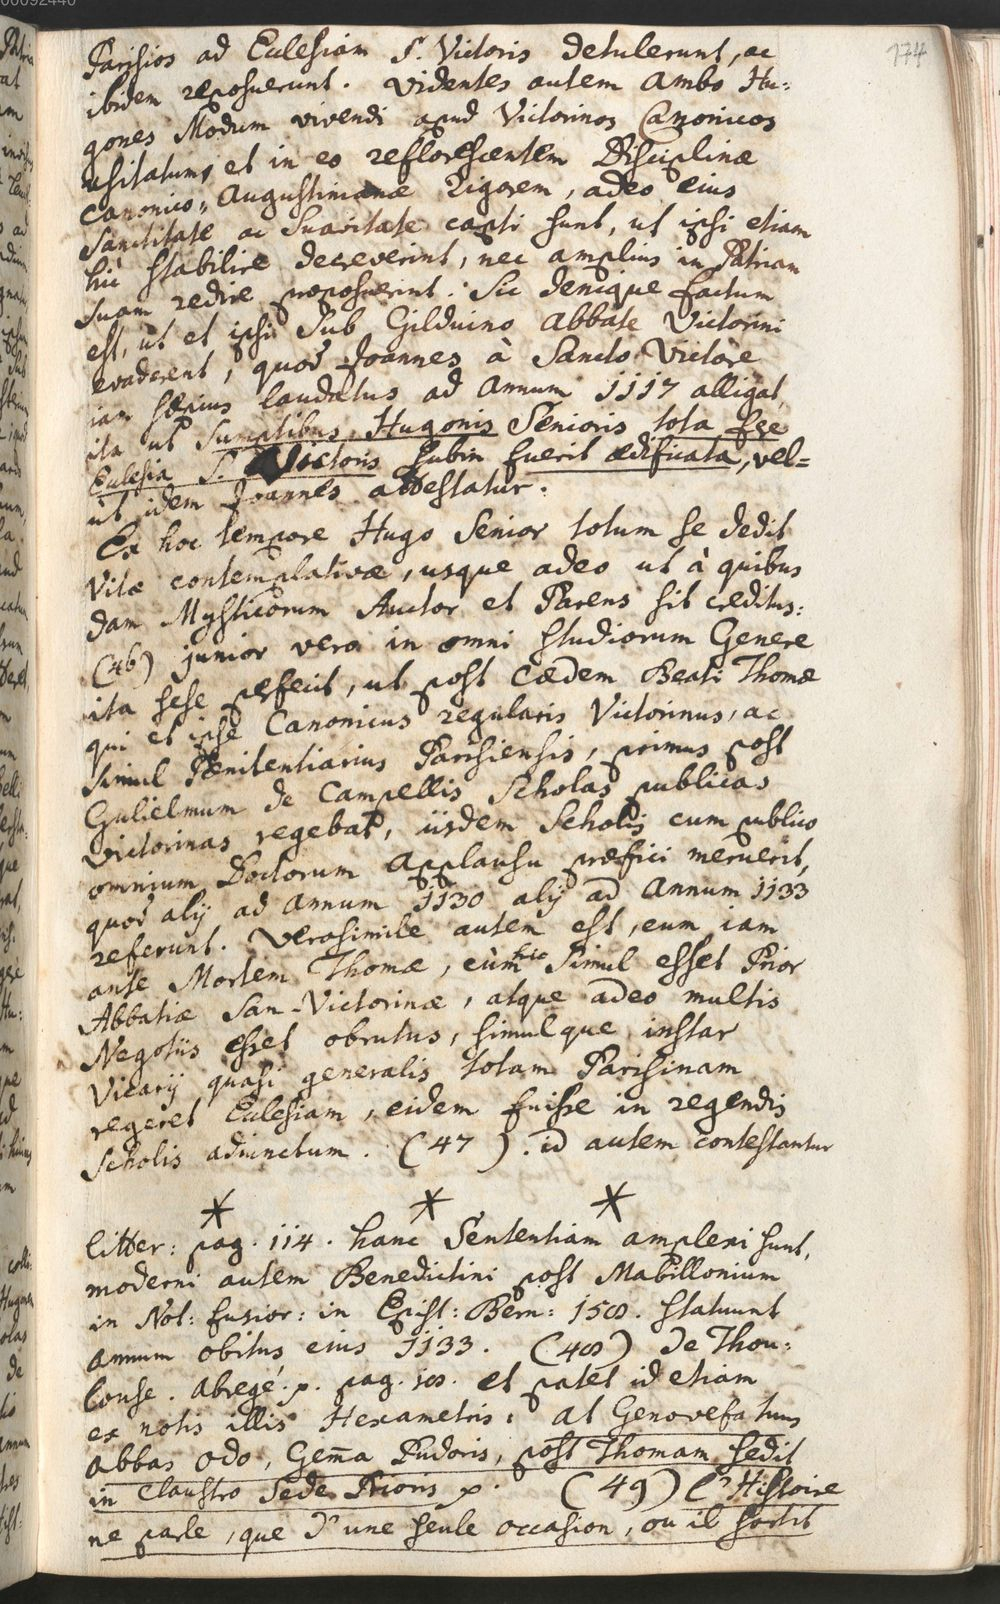 174
Parisios ad Eclesiam S. Victoris detulerunt, ac
ibidem reposuerunt. Videntes autem Ambo Hu-
gones Modum vivendi apud Victorinos Canonicos
usitatum, et in eo reflorescentem Disciplinæ
Canonico-Augustinianæ Rigorem, adeo eius
Sanctitate ac Suavitate capti sunt, ut ipsi etiam
hic stabilire decreverint, nec amplius in Patriam
suam redire proposuerint. Sic denique factum
est, ut et ipsi Sub Gilduino Abbate Victorini
evaderent, quod Joannes à Sancto Victore
iam sæpius laudatus ad Annum 1117 alligat,
ita ut Sumptibus Hugonis Senioris tota fere
Eclesia S. Victoris subin fuerit ædificata, vel=
ut idem Joannes attestatur.
Ex hoc tempore Hugo Senior totum se dedit
Vitæ contemplativæ, usque adeo ut à quibus
dam Mysticorum Auctor et Parens sit creditus:
(46) junior vero in omni studiorum Genere
ita sese perfecit, ut post cædem Beati Thomæ
qui et ipse Canonicus regularis Victorinus, ac
simul Pænitentiarius Parisiensis, primus post
Gulielmum de Campellis Scholas publicas
Victorinas regebat, iisdem Scholis cum publico
omnium Doctorum Applausu præfici meruerit,
quod alij ad Annum 1130 alij ad Annum 1133
referunt. Verosimile autem est, eum iam
ante Mortem Thomæ, cùm hic Simul esset Prior
Abbatiæ San-Victorinæ, atque adeo multis
Negotiis esset obrutus, simulque instar
Vicarij quasi generalis totam Parisinam
regeret Eclesiam, eidem fuisse in regendis
Scholis adiunctum. (47). id autem contestantur
* * *
litter: pag. 114. hanc Sententiam amplexi sunt,
moderni autem Benedictini post Mabillonium
in Not: fusior: in Epist: Bern: 158. statuunt
Annum obitus eius 1133. (48) de Thou-
louse. Abregé. p. pag. 18. et patet id etiam
ex notis illis Hexametris: At Genovefa tuus
Abbas Odo, Gem̄a Pudoris, post Thomam sedit
in Claustro Sede Prioris p. (49) l'Histoire
ne parle, que d'une seule occasion, ou il sortit